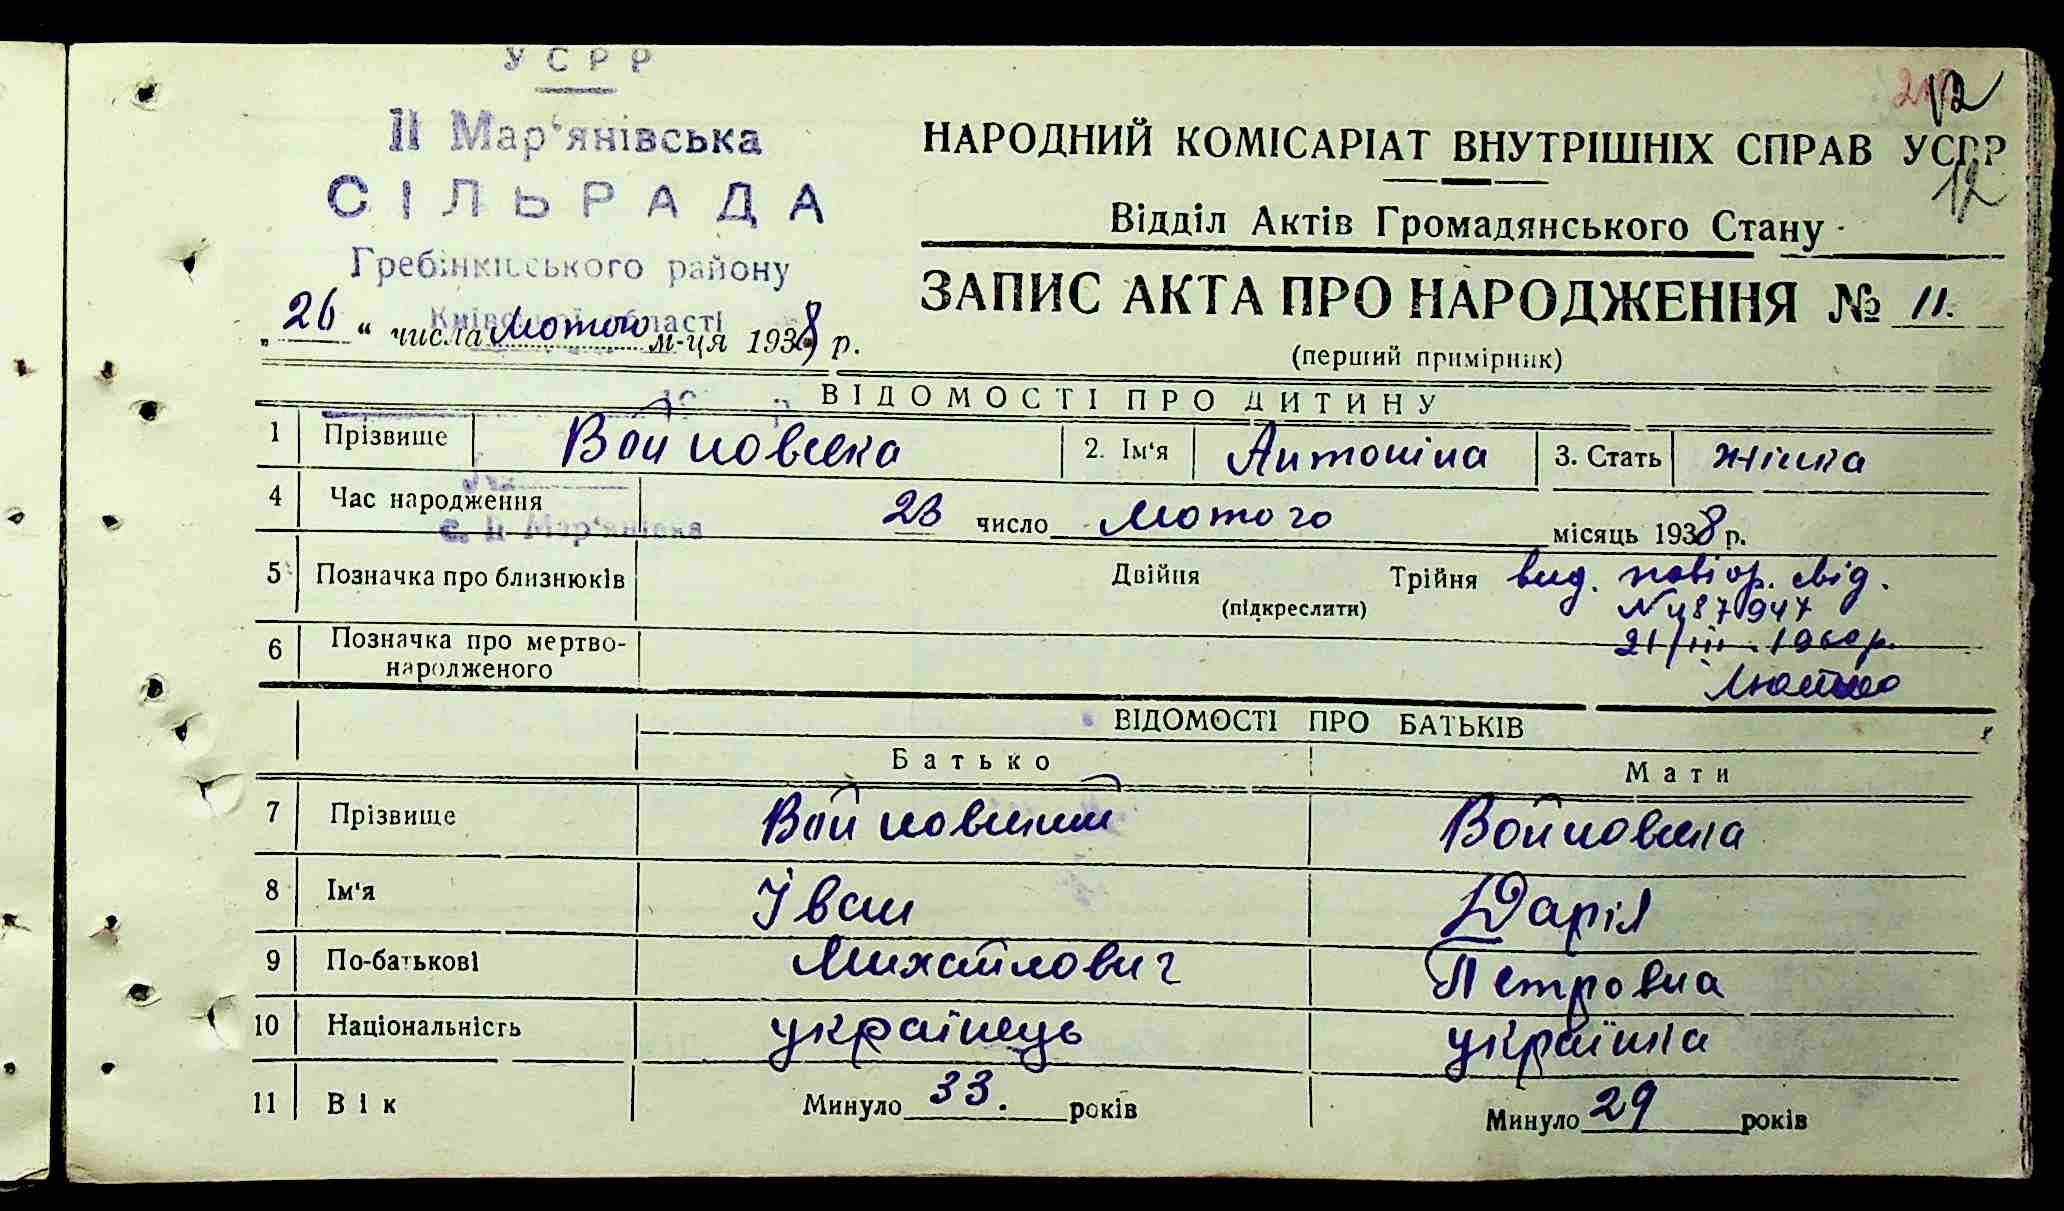 УСРР
ІІ Мар'янівська
СІЛЬРАДА
Гребінківського району
Київської області
„26“ числа Лютого м-ця 1938 р.
12
12
НАРОДНИЙ КОМІСАРІАТ ВНУТРІШНІХ СПРАВ УСРР
Відділ Актів Громадянського Стану
ЗАПИС АКТА ПРО НАРОДЖЕННЯ № 11.
(перший примірник)
ВІДОМОСТІ ПРО ДИТИНУ
1 Прізвище Войновська 2. Ім'я Антоніна 3. Стать жінка
4 Час народження 23 число Лютого місяць 1938 р.
с. ІІ Мар'янівка
5 Позначка про близнюків Двійня Трійня вид. повтор. свід.
(підкреслити) № 487947
6 Позначка про мертво- 21/ІІІ
народженого
ВІДОМОСТІ ПРО БАТЬКІВ
Батько Мати
7 Прізвище Войновський Войновська
8 Ім'я Іван Дарія
9 По-батькові Михайлович Петровна
10 Національність українець українка
11 Вік Минуло 33. років Минуло 29 років